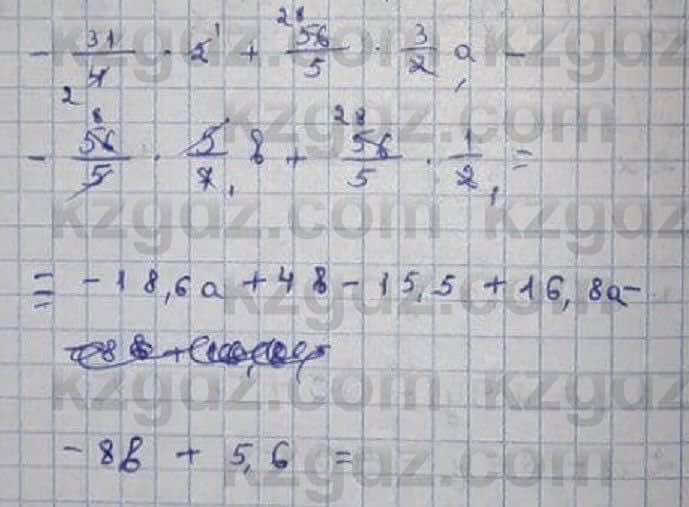 - 31/4 · 2 + 56/5 · 3/2 a -
- 56/5 · 5/7 в + 56/5 · 1/2 =
= -18,6a + 4в - 15,5 + 16,8a -
- 8в + 5,6 =
kzgdz.com